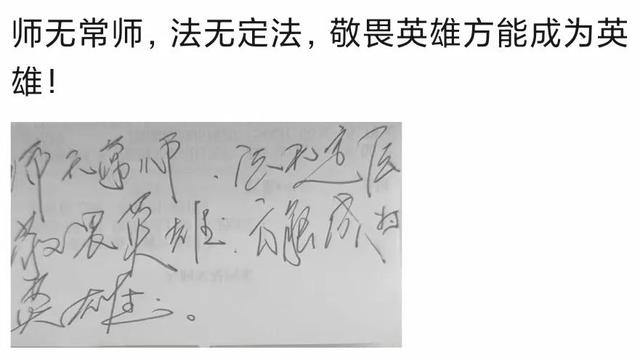 师无常师，法无定法，敬畏英雄方能成为英
雄！
师无常师．法无定法
敬畏英雄．方能成为
英雄。